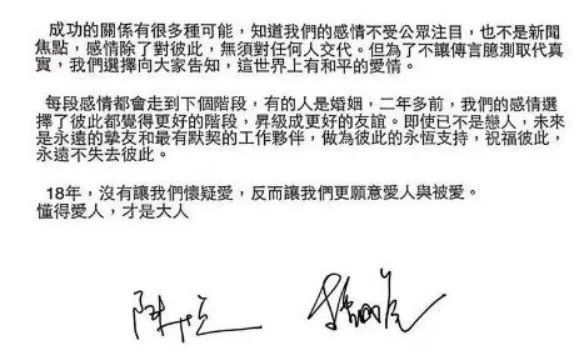 成功的關係有很多種可能，知道我們的感情不受公眾注目，也不是新聞
焦點，感情除了對彼此，無須對任何人交代。但為了不讓傳言臆測取代真
實，我們選擇向大家告知，這世界上有和平的愛情。
每段感情都會走到下個階段，有的人是婚姻，二年多前，我們的感情選
擇了彼此都覺得更好的階段，昇級成更好的友誼。即使已不是戀人，未來
是永遠的摯友和最有默契的工作夥伴，做為彼此的永恆支持，祝福彼此，
永遠不失去彼此。
18年，沒有讓我們懷疑愛，反而讓我們更願意愛人與被愛。
懂得愛人，才是大人